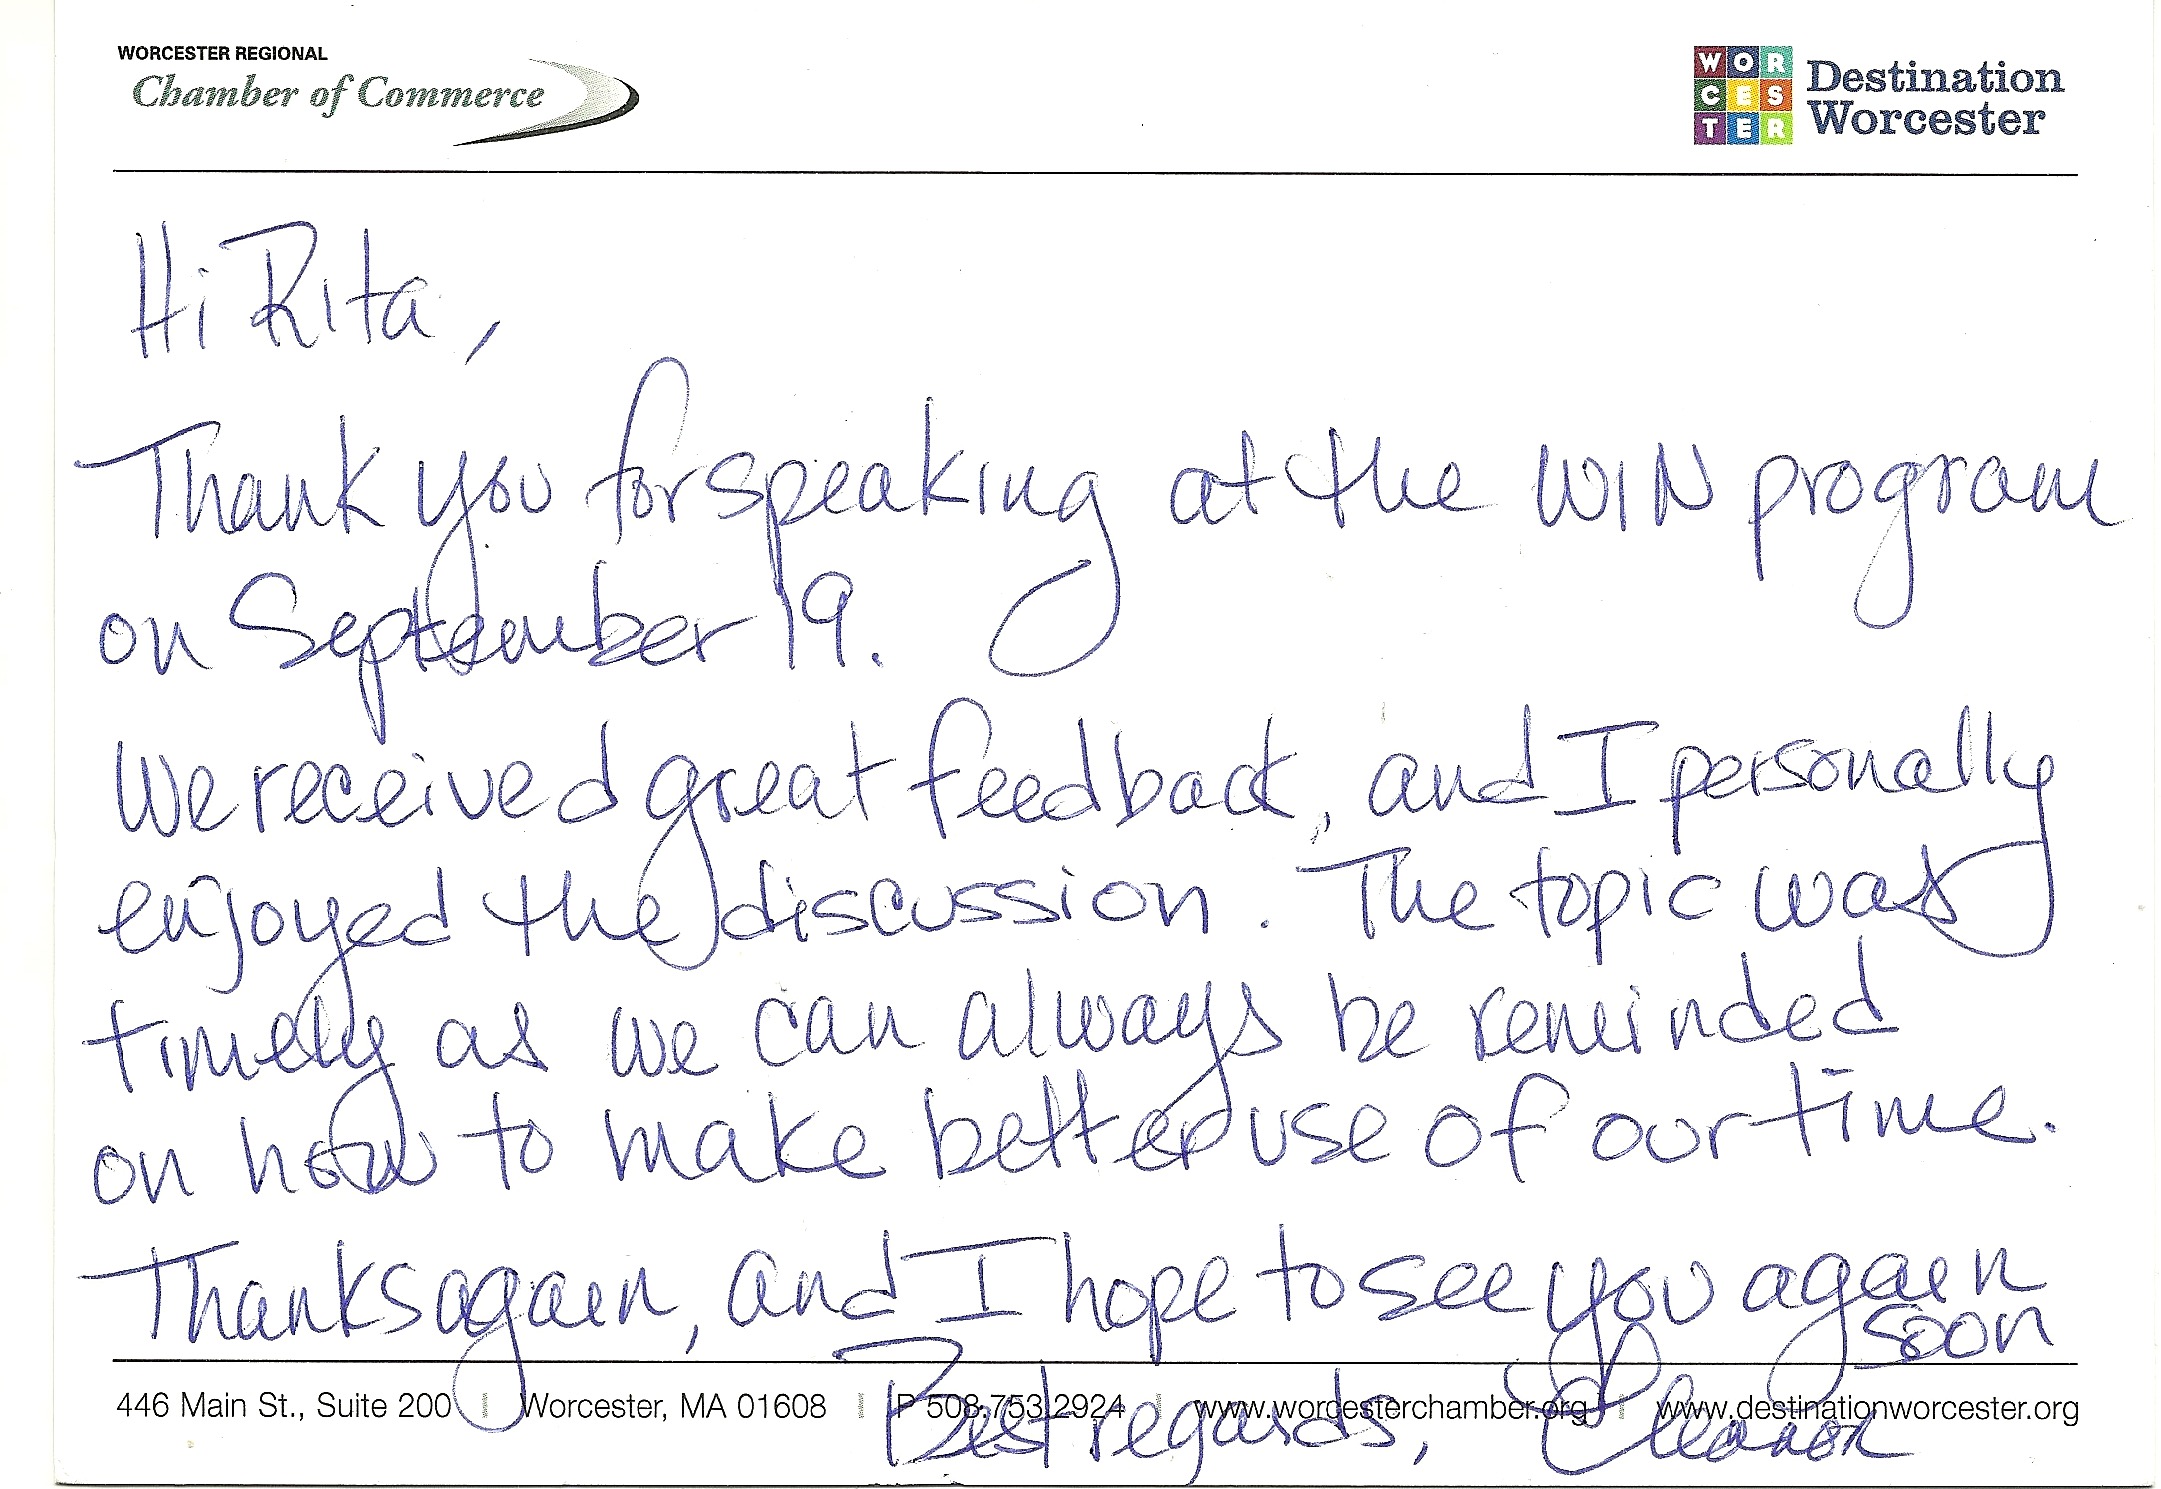 WORCESTER REGIONAL
Chamber of Commerce
WOR
CES
TER
Destination
Worcester
Hi Rita,
Thank you for speaking at the WIN program
on September 19.
We received great feedback, and I personally
enjoyed the discussion. The topic was
timely as we can always be reminded
on how to make better use of our time.
Thanks again, and I hope to see you again
soon
446 Main St., Suite 200 | Worcester, MA 01608 | P 508.753.2924 | www.worcesterchamber.org | www.destinationworcester.org
Best regards, Eleanor